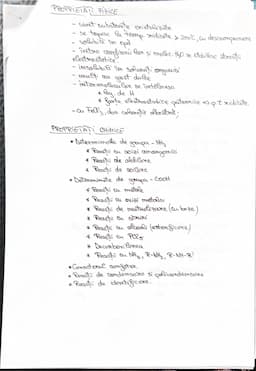 PROPRIETĂȚI FIZICE
- sunt substanțe cristalizate
- se topesc la temp. ridicate > 200°C, cu descompunere
- solubili în apă
- între
electrostatice
- insolubili în solvenți organici
- mulți au gust dulce
- intermolecular se întâlnesc
* leg. de H
* forțe electrostatice puternice => p.t. ridicate.
- cu FeCl₃ dau colorații
PROPRIETĂȚI CHIMICE
• Determinate de grupa -NH₂
* Reacții cu acizi
* Reacții de alchilare
* Reacții de acilare
• Determinate de grupa -COOH
* Reacții cu metale
* Reacții cu oxizi metalici
* Reacții de neutralizare (cu baze)
* Reacții cu săruri
* Reacții cu alcooli (esterificare)
* Reacții cu PCl₅
* Decarboxilarea
* Reacții cu NH₃, R-NH₂, R-NH-R'
• Caracterul amfoter
• Reacții de condensare și policondensare
• Reacții de identificare.